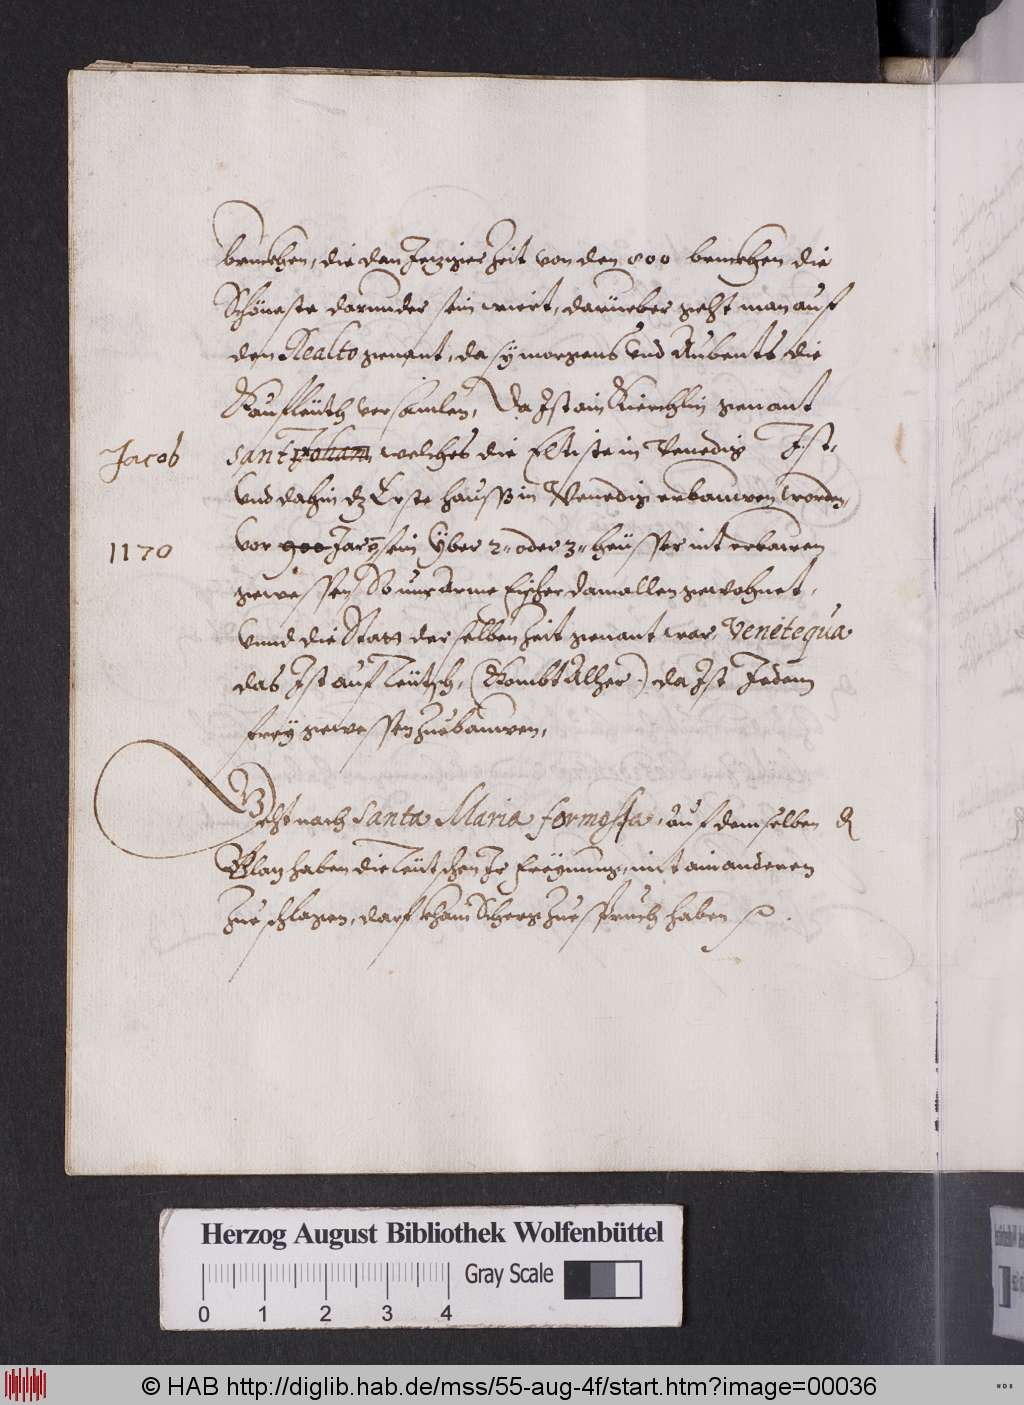 bruckhen, die dan Jeziger Zeit von den 800 bruckhen die
Schöneste darunder sein wiert, darüeber geht man auf
den Realto genant, da sy morgens vnd Aubents die
Kaufleüth versamlen, Da Jst ain Kürchlin genant
Jacob sant Johann welches die Eltiste in Venedig Jst,
vnd dahin dz Erste hauß in Venedig erbauwen worden,
1170 vor 900 Jarn sein Yber 2 oder 3 heüsser nit erbauen
gewessen So nur arme Fischer damallen gewohnet,
vnnd die Statt derselben Zeit genant war Venetequa
das Jst auf Teütsch, (Kombt Alher) da Jst Jedem
freÿ gewessen Zue bauwen,
Geht nach Santa Maria formossa, auf dem selben
Plaz haben die Teütschen Jr freÿung, mit ain anderen
Zue schlagen, darf khain Scherg Zuespruch haben
Herzog August Bibliothek Wolfenbüttel
Gray Scale
0 1 2 3 4
© HAB http://diglib.hab.de/mss/55-aug-4f/start.htm?image=00036